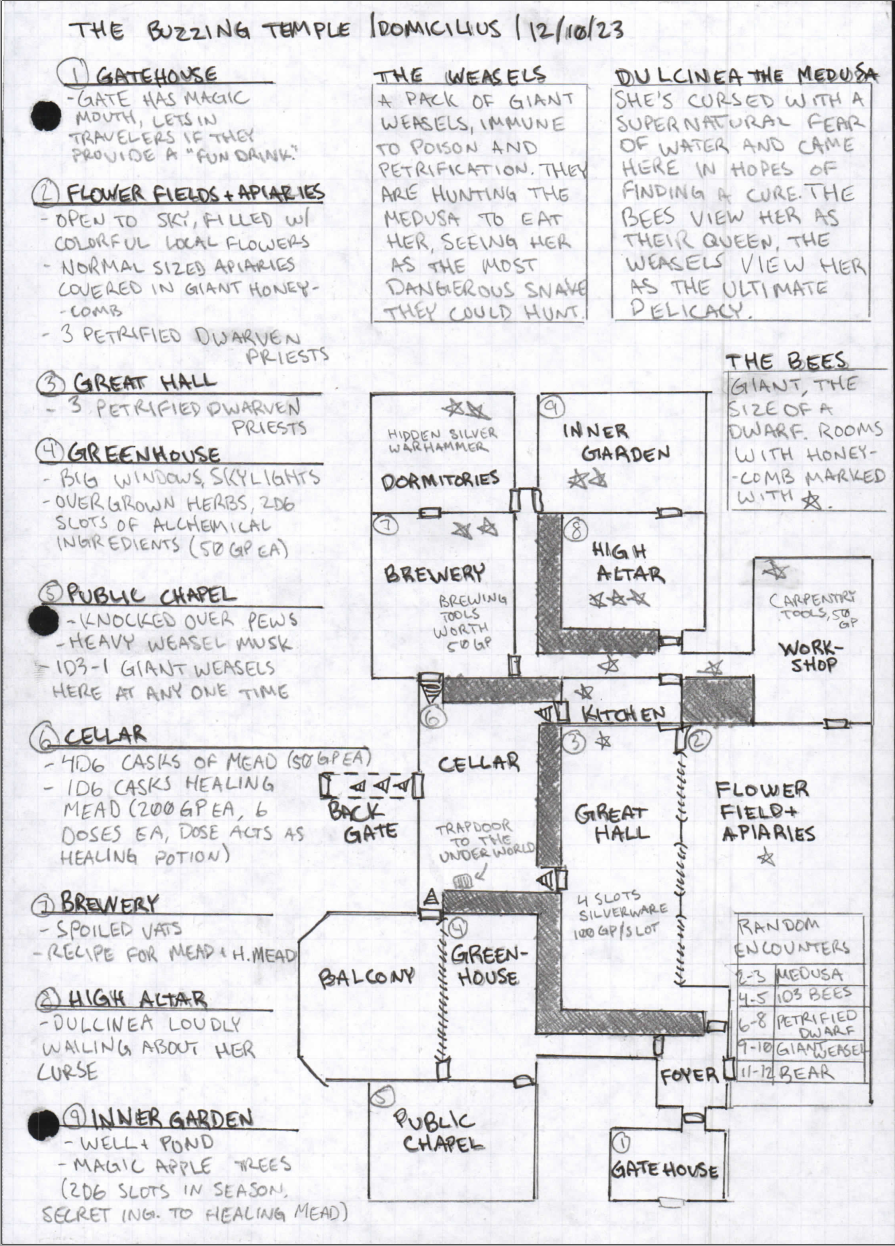 THE BUZZING TEMPLE / DOMICILIUS / 12/10/23
① GATEHOUSE
- GATE HAS MAGIC
MOUTH, LETS IN
TRAVELERS IF THEY
PROVIDE A "FUN DRINK."
② FLOWER FIELDS + APIARIES
- OPEN TO SKY, FILLED W/
COLORFUL LOCAL FLOWERS
- NORMAL SIZED APIARIES
COVERED IN GIANT HONEY-
-COMB
- 3 PETRIFIED DWARVEN
PRIESTS
③ GREAT HALL
- 3 PETRIFIED DWARVEN
PRIESTS
④ GREENHOUSE
- BIG WINDOWS, SKYLIGHTS
- OVERGROWN HERBS, 2D6
SLOTS OF ALCHEMICAL
INGREDIENTS (50 GP EA)
⑤ PUBLIC CHAPEL
- KNOCKED OVER PEWS
- HEAVY WEASEL MUSK
- 1D3-1 GIANT WEASELS
HERE AT ANY ONE TIME
⑥ CELLAR
- 4D6 CASKS OF MEAD (50 GP EA)
- 1D6 CASKS HEALING
MEAD (200 GP EA, 6
DOSES EA, DOSE ACTS AS
HEALING POTION)
⑦ BREWERY
- SPOILED VATS
- RECIPE FOR MEAD + H.MEAD
⑧ HIGH ALTAR
- DULCINEA LOUDLY
WAILING ABOUT HER
CURSE
⑨ INNER GARDEN
- WELL + POND
- MAGIC APPLE TREES
(2D6 SLOTS IN SEASON,
SECRET ING. TO HEALING MEAD)
THE WEASELS
A PACK OF GIANT
WEASELS, IMMUNE
TO POISON AND
PETRIFICATION. THEY
ARE HUNTING THE
MEDUSA TO EAT
HER, SEEING HER
AS THE MOST
DANGEROUS SNAKE
THEY COULD HUNT.
DULCINEA THE MEDUSA
SHE'S CURSED WITH A
SUPERNATURAL FEAR
OF WATER AND CAME
HERE IN HOPES OF
FINDING A CURE. THE
BEES VIEW HER AS
THEIR QUEEN, THE
WEASELS VIEW HER
AS THE ULTIMATE
DELICACY.
THE BEES
GIANT, THE
SIZE OF A
DWARF. ROOMS
WITH HONEY-
-COMB MARKED
WITH ☆.
HIDDEN SILVER
WARHAMMER
DORMITORIES
⑨
INNER
GARDEN
⑦
BREWERY
BREWING
TOOLS
WORTH
50 GP
⑧
HIGH
ALTAR
CARPENTRY
TOOLS, 50
GP
WORK-
SHOP
KITCHEN
⑥
CELLAR
BACK
GATE
TRAPDOOR
TO THE
UNDERWORLD
③
GREAT
HALL
4 SLOTS
SILVERWARE
100 GP/SLOT
②
FLOWER
FIELD +
APIARIES
BALCONY
④
GREEN-
HOUSE
RANDOM
ENCOUNTERS
2-3 MEDUSA
4-5 1D3 BEES
6-8 PETRIFIED
DWARF
9-10 GIANT WEASEL
11-12 BEAR
FOYER
⑤
PUBLIC
CHAPEL
①
GATEHOUSE